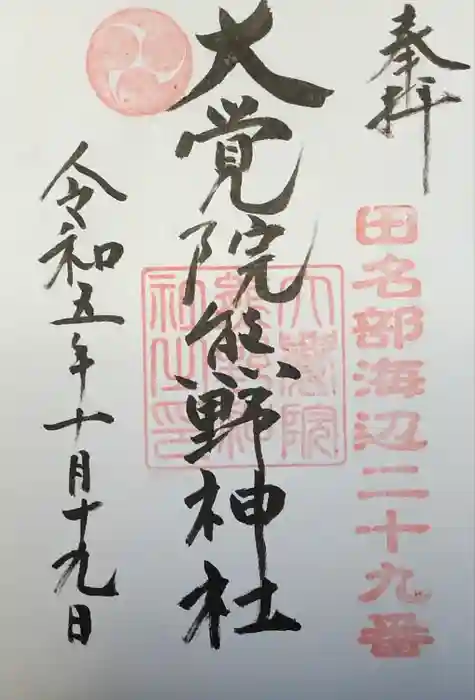 奉拝
田名部海辺二十九番
大覚院熊野神社
令和五年十月十九日